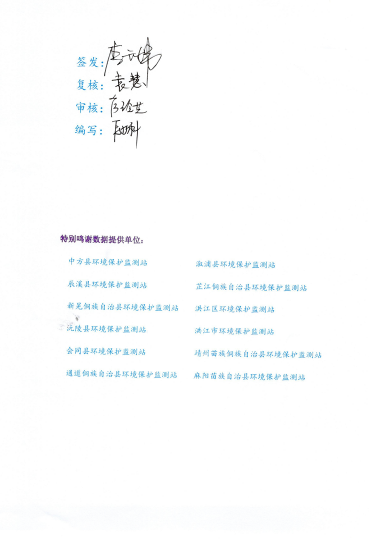 签发:
复核: 袁慧
审核:
编写:
特别鸣谢数据提供单位:
中方县环境保护监测站 溆浦县环境保护监测站
辰溪县环境保护监测站 芷江侗族自治县环境保护监测站
新晃侗族自治县环境保护监测站 洪江区环境保护监测站
沅陵县环境保护监测站 洪江市环境保护监测站
会同县环境保护监测站 靖州苗族侗族自治县环境保护监测站
通道侗族自治县环境保护监测站 麻阳苗族自治县环境保护监测站